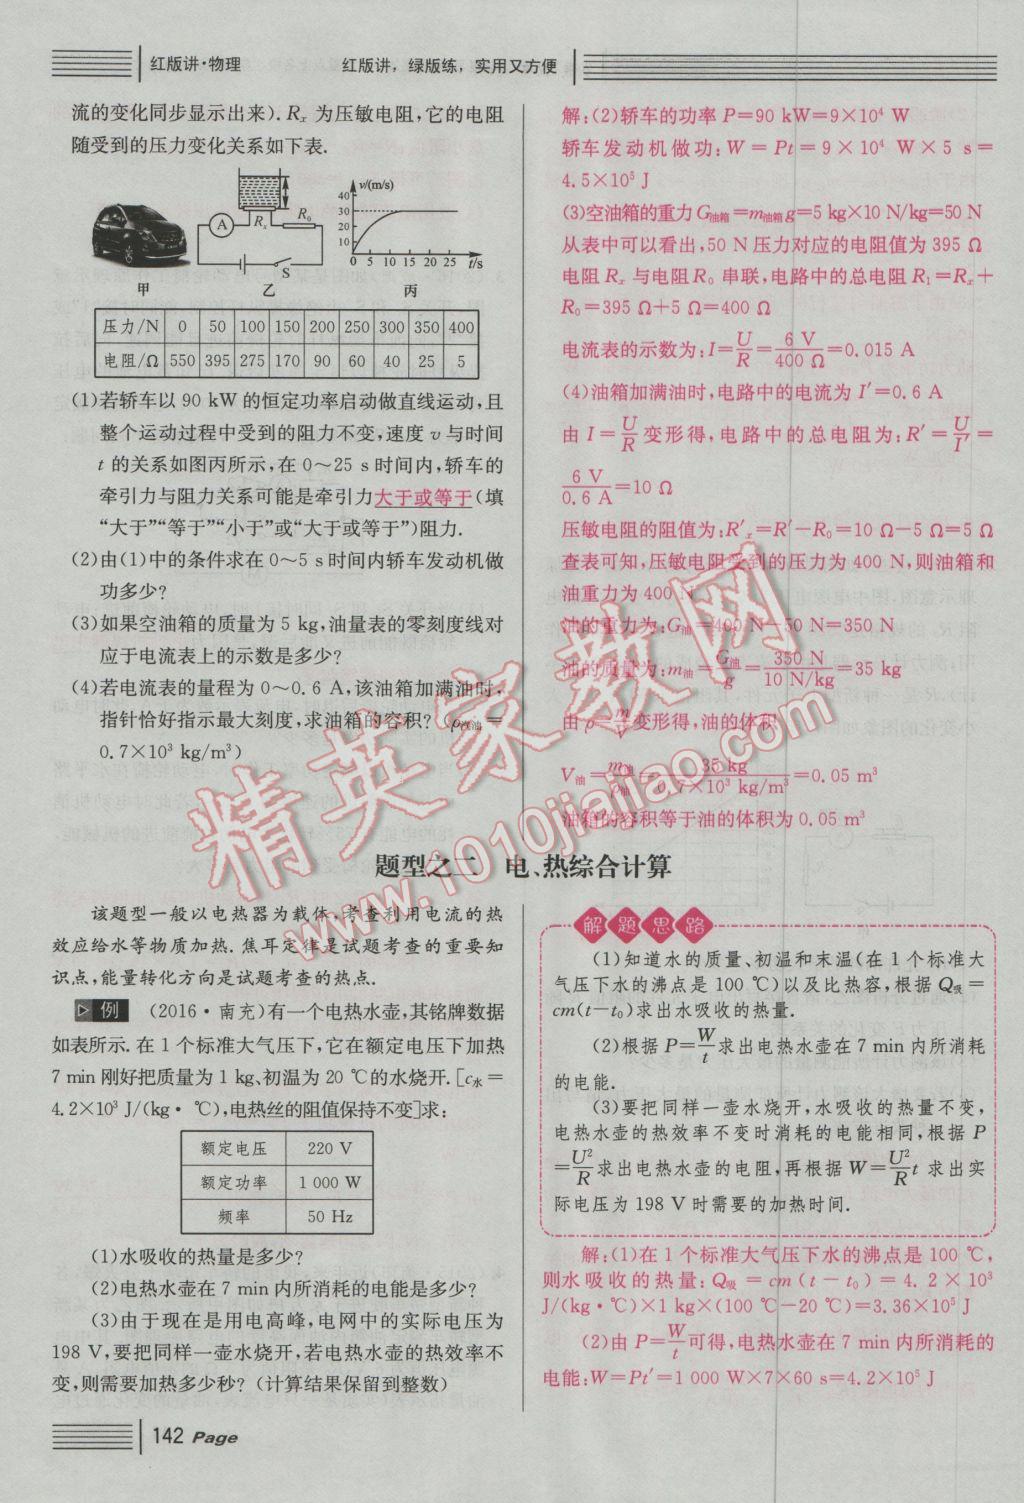 红版讲·物理
红版讲，绿版练，实用又方便
流的变化同步显示出来). Rₓ 为压敏电阻,它的电阻
随受到的压力变化关系如下表.
A
Rₓ
R₀
S
v/(m/s)
40
30
20
10
0 5 10 15 20 25 t/s
甲 乙 丙
压力/N 0 50 100 150 200 250 300 350 400
电阻/Ω 550 395 275 170 90 60 40 25 5
(1)若轿车以 90 kW 的恒定功率启动做直线运动,且
整个运动过程中受到的阻力不变,速度 v 与时间
t 的关系如图丙所示,在 0～25 s 时间内,轿车的
牵引力与阻力关系可能是牵引力大于或等于(填
“大于”“等于”“小于”或“大于或等于”)阻力.
(2)由(1)中的条件求在 0～5 s 时间内轿车发动机做
功多少?
(3)如果空油箱的质量为 5 kg,油量表的零刻度线对
应于电流表上的示数是多少?
(4)若电流表的量程为 0～0.6 A,该油箱加满油时,
指针恰好指示最大刻度,求油箱的容积? (ρ汽油=
0.7×10³ kg/m³)
解:(2)轿车的功率 P=90 kW=9×10⁴ W
轿车发动机做功:W=Pt=9×10⁴ W×5 s=
4.5×10⁵ J
(3)空油箱的重力 G油箱=m油箱g=5 kg×10 N/kg=50 N
从表中可以看出,50 N 压力对应的电阻值为 395 Ω
电阻 Rₓ 与电阻 R₀ 串联,电路中的总电阻 R₁=Rₓ+
R₀=395 Ω+5 Ω=400 Ω
电流表的示数为:I=U/R=6 V/400 Ω=0.015 A
(4)油箱加满油时,电路中的电流为 I′=0.6 A
由 I=U/R变形得,电路中的总电阻为:R′=U/I′=
6 V/0.6 A=10 Ω
压敏电阻的阻值为:R′ₓ=R′-R₀=10 Ω-5 Ω=5 Ω
查表可知,压敏电阻受到的压力为 400 N,则油箱和
油重力为 400 N
油的重力为:G油=400 N-50 N=350 N
油的质量为:m油=G油/g=350 N/10 N/kg=35 kg
由 ρ=m/V变形得,油的体积
V油=m油/ρ油=35 kg/0.7×10³ kg/m³=0.05 m³
油箱的容积等于油的体积为 0.05 m³
题型之二 电、热综合计算
该题型一般以电热器为载体,考查利用电流的热
效应给水等物质加热.焦耳定律是试题考查的重要知
识点,能量转化方向是试题考查的热点.
例 (2016·南充)有一个电热水壶,其铭牌数据
如表所示.在 1 个标准大气压下,它在额定电压下加热
7 min 刚好把质量为 1 kg、初温为 20 ℃的水烧开.[c水=
4.2×10³ J/(kg·℃),电热丝的阻值保持不变]求:
额定电压 220 V
额定功率 1 000 W
频率 50 Hz
(1)水吸收的热量是多少?
(2)电热水壶在 7 min 内所消耗的电能是多少?
(3)由于现在是用电高峰,电网中的实际电压为
198 V,要把同样一壶水烧开,若电热水壶的热效率不
变,则需要加热多少秒? (计算结果保留到整数)
解题思路
(1)知道水的质量、初温和末温(在 1 个标准大
气压下水的沸点是 100 ℃)以及比热容,根据 Q吸=
cm(t-t₀)求出水吸收的热量.
(2)根据 P=W/t求出电热水壶在 7 min 内所消耗
的电能.
(3)要把同样一壶水烧开,水吸收的热量不变,
电热水壶的热效率不变时消耗的电能相同,根据 P
=U²/R求出电热水壶的电阻,再根据 W=U²/R t 求出实
际电压为 198 V 时需要的加热时间.
解:(1)在 1 个标准大气压下水的沸点是 100 ℃,
则水吸收的热量:Q吸=cm(t-t₀)=4.2×10³
J/(kg·℃)×1 kg×(100 ℃-20 ℃)=3.36×10⁵ J
(2)由 P=W/t可得,电热水壶在 7 min 内所消耗的
电能:W=Pt′=1 000 W×7×60 s=4.2×10⁵ J
142 Page
精英家教网
www.1010jiajiao.com